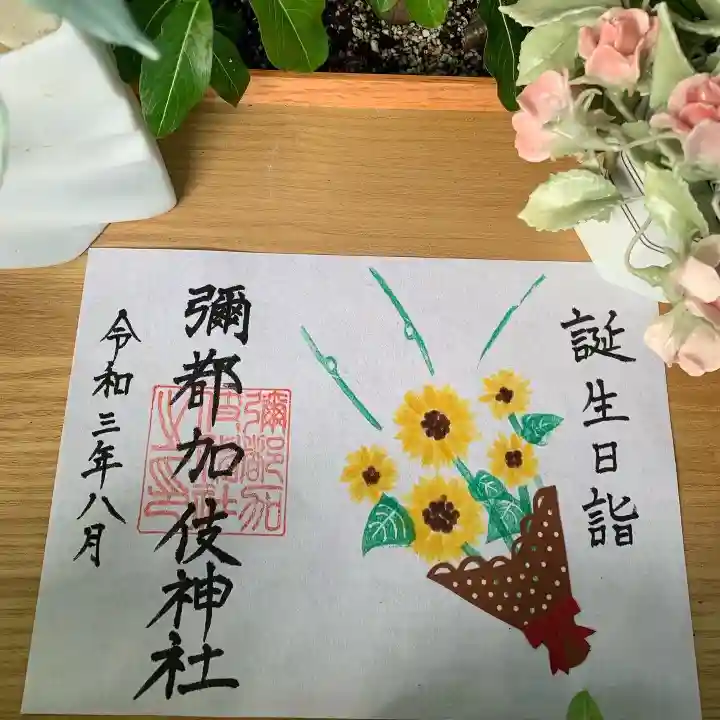 誕生日詣
彌都加伎神社
令和三年八月
彌都加
伎神社
之印